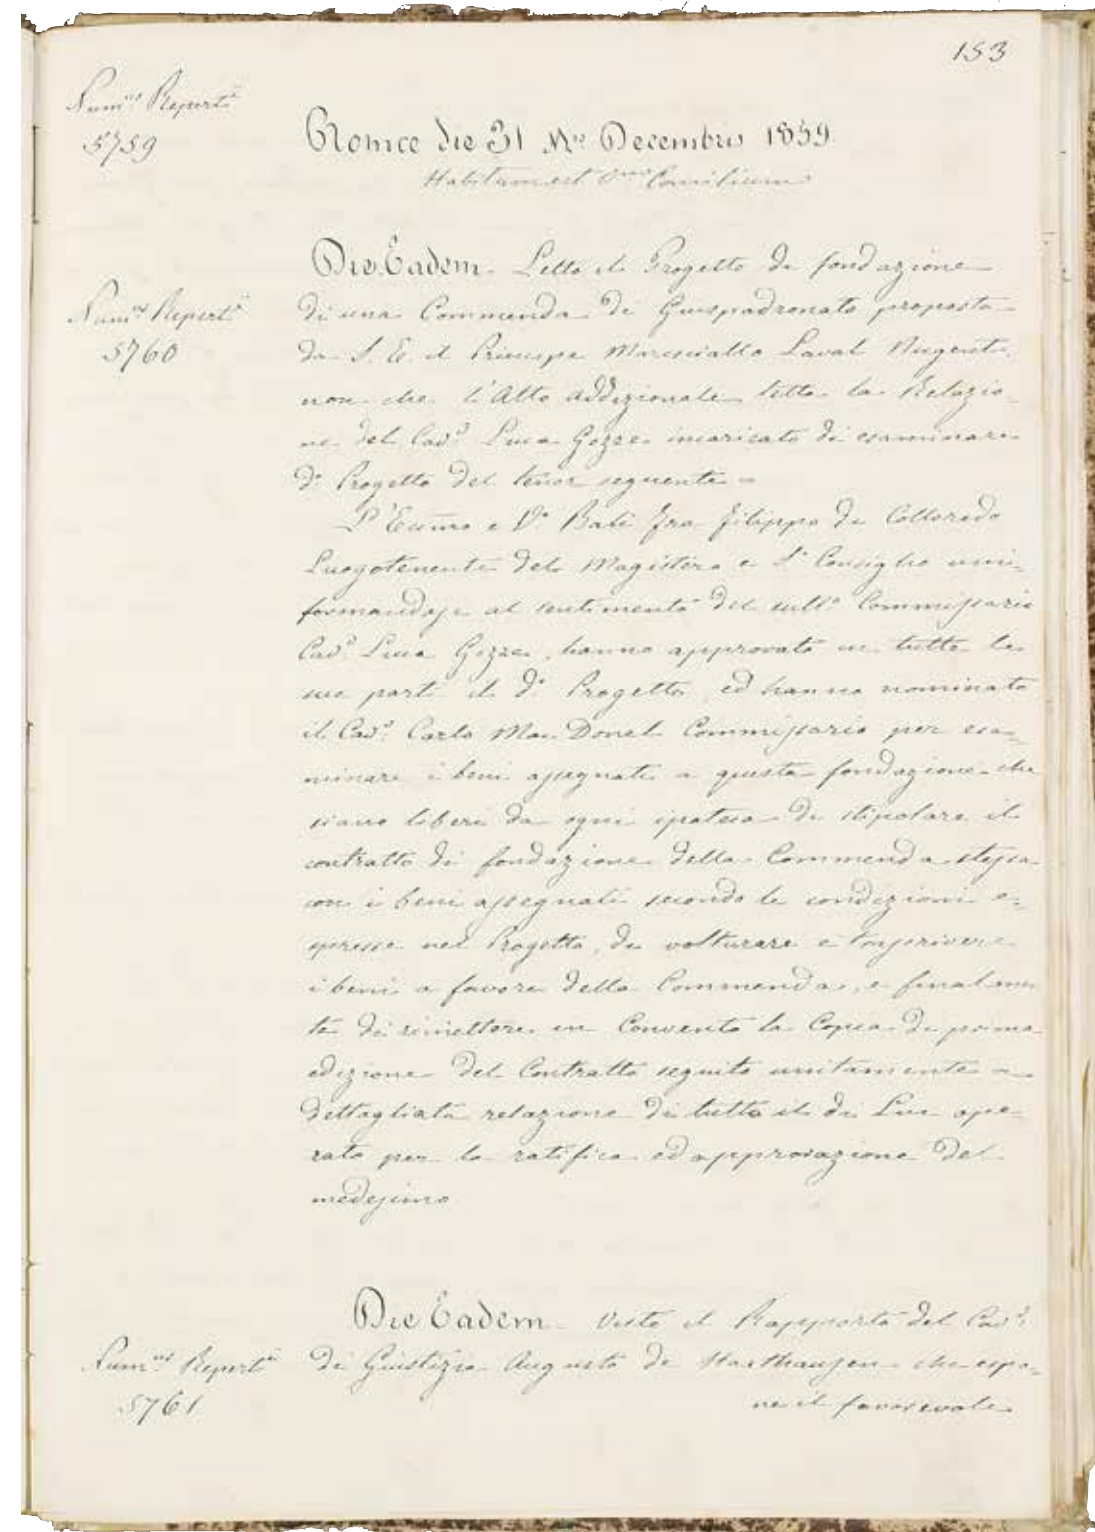 153
Num.us Repert.ii
5759
Romæ die 31 M.is Decembris 1859.
Habitum est V.um Consilium
Die Eadem. Letto il Progetto di fondazione
Num.us Repert.ii
5760
di una Commenda di Giuspadronato proposta
da S. E. il Principe Maresciallo Laval Nugent
non che l'Atto addizionale, letta la Relazio-
ne del Cav.e Luca Gozze incaricato di esaminare
d.o Progetto del tenor seguente =
L'Ecc͞mo e V.o Balì Fra Filippo di Colloredo
Luogotenente del Magistero e S.o Consiglio uni-
formandosi al sentimento del sull.o Commissario
Cav.e Luca Gozze, hanno approvato in tutte le
sue parti il d.o Progetto, ed hanno nominato
il Cav.e Carlo Mac Donel Commissario per esa-
minare i beni assegnati a questa fondazione che
siano liberi da ogni ipoteca di stipolare il
contratto di fondazione della Commenda stessa
con i beni assegnati secondo le condizioni e-
spresse nel Progetto, di volturare e trascrivere
i beni a favore della Commenda, e finalmen
te di rimettere in Convento la Copia di prima
edizione del Contratto seguito unitamente a
dettagliata relazione di tutto il di Lui ope-
rato per la ratifica ed approvazione del
medesimo
Die Eadem. Visto il Rapporto del Cav.e
Num.us Repert.ii
5761
di Giustizia Augusto de Haxthausen che espo-
ne il favorevole